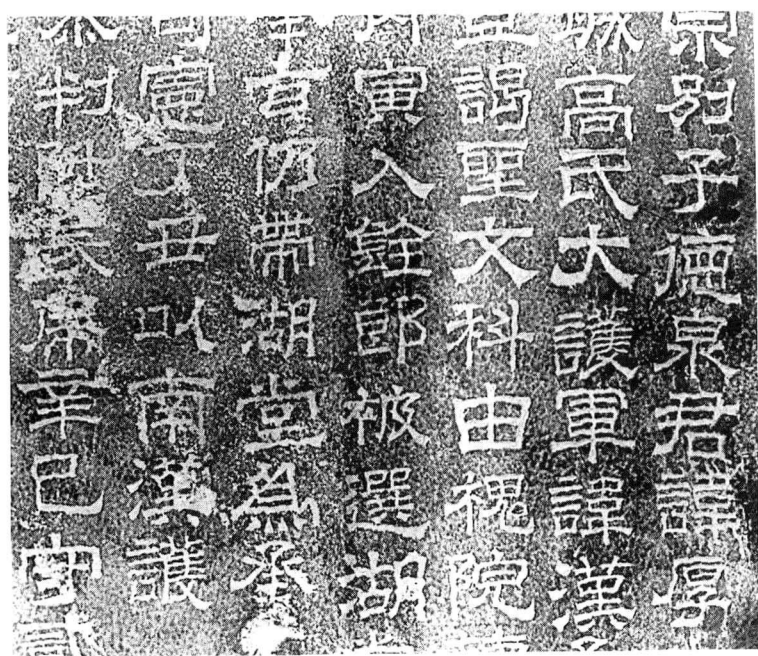 宗別子德泉君諱厚
縣高氏大護軍諱漢
丑謁聖文科由槐院
丙寅入銓郎被選湖
亥仍帶湖堂爲承
憲丁丑以南漢護
判 席辛巳守